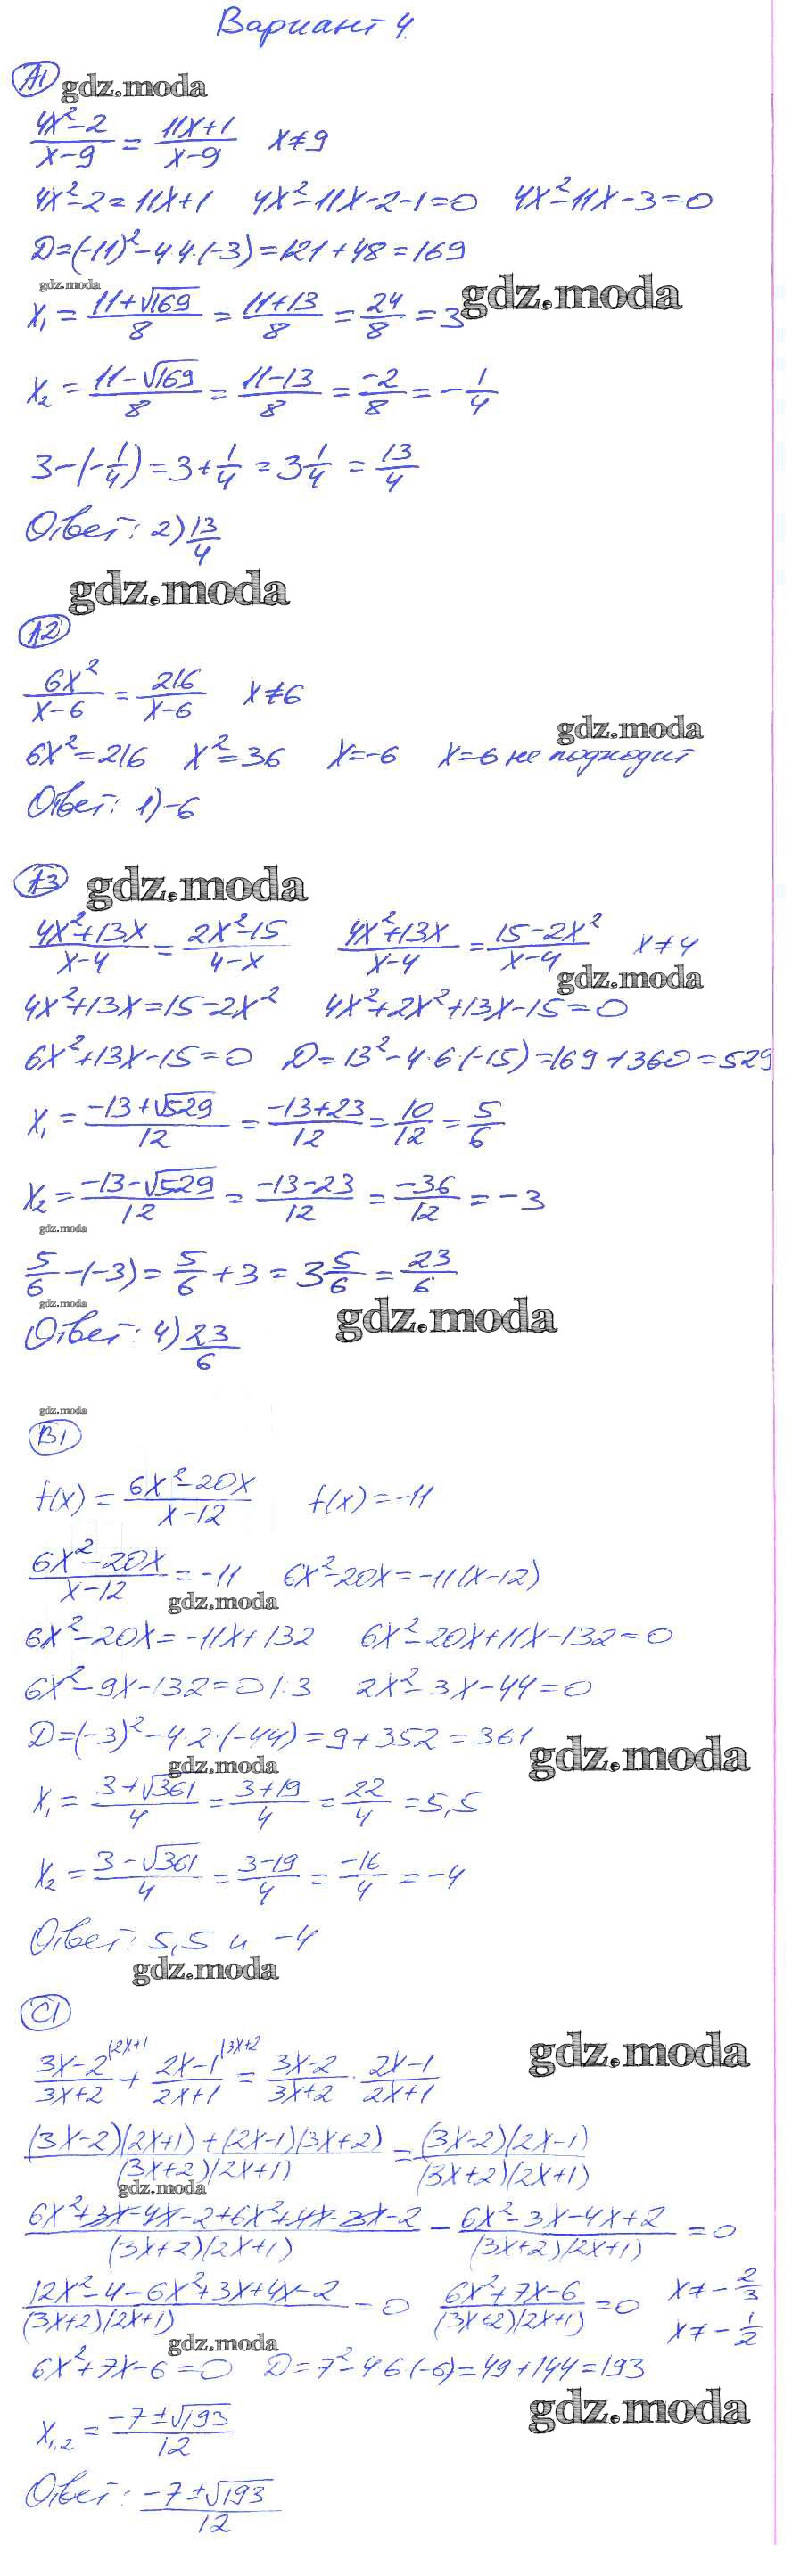 Вариант 4.
А1 gdz.moda
(4x²-2)/(x-9) = (11x+1)/(x-9)   x≠9
4x²-2=11x+1   4x²-11x-2-1=0   4x²-11x-3=0
D=(-11)²-4·4·(-3)=121+48=169
gdz.moda
x₁ = (11+√169)/8 = (11+13)/8 = 24/8 = 3 gdz.moda
x₂ = (11-√169)/8 = (11-13)/8 = -2/8 = -1/4
3-(-1/4) = 3+1/4 = 3 1/4 = 13/4
Ответ: 2) 13/4
gdz.moda
А2
6x²/(x-6) = 216/(x-6)   x≠6
gdz.moda
6x²=216   x²=36   x=-6   x=6 не подходит
Ответ: 1) -6
А3 gdz.moda
(4x²+13x)/(x-4) = (2x²-15)/(4-x)   (4x²+13x)/(x-4) = (15-2x²)/(x-4)   x≠4
gdz.moda
4x²+13x=15-2x²   4x²+2x²+13x-15=0
6x²+13x-15=0   D=13²-4·6·(-15)=169+360=529
x₁ = (-13+√529)/12 = (-13+23)/12 = 10/12 = 5/6
x₂ = (-13-√529)/12 = (-13-23)/12 = -36/12 = -3
gdz.moda
5/6-(-3) = 5/6+3 = 3 5/6 = 23/6
gdz.moda
Ответ: 4) 23/6 gdz.moda
gdz.moda
В1
f(x) = (6x²-20x)/(x-12)   f(x)=-11
(6x²-20x)/(x-12) = -11   6x²-20x=-11(x-12)
gdz.moda
6x²-20x=-11x+132   6x²-20x+11x-132=0
6x²-9x-132=0 |:3   2x²-3x-44=0
D=(-3)²-4·2·(-44)=9+352=361 gdz.moda
gdz.moda
x₁ = (3+√361)/4 = (3+19)/4 = 22/4 = 5,5
x₂ = (3-√361)/4 = (3-19)/4 = -16/4 = -4
Ответ: 5,5 и -4
gdz.moda
С1
gdz.moda
(3x-2)/(3x+2) |2x+1 + (2x-1)/(2x+1) |3x+2 = (3x-2)/(3x+2) · (2x-1)/(2x+1)
((3x-2)(2x+1)+(2x-1)(3x+2))/((3x+2)(2x+1)) = ((3x-2)(2x-1))/((3x+2)(2x+1))
gdz.moda
(6x²+3x-4x-2+6x²+4x-3x-2)/((3x+2)(2x+1)) - (6x²-3x-4x+2)/((3x+2)(2x+1)) = 0
(12x²-4-6x²+3x+4x-2)/((3x+2)(2x+1)) = 0   (6x²+7x-6)/((3x+2)(2x+1)) = 0   x≠-2/3
x≠-1/2
gdz.moda
6x²+7x-6=0   D=7²-4·6·(-6)=49+144=193
gdz.moda
x₁,₂ = (-7±√193)/12
Ответ: (-7±√193)/12